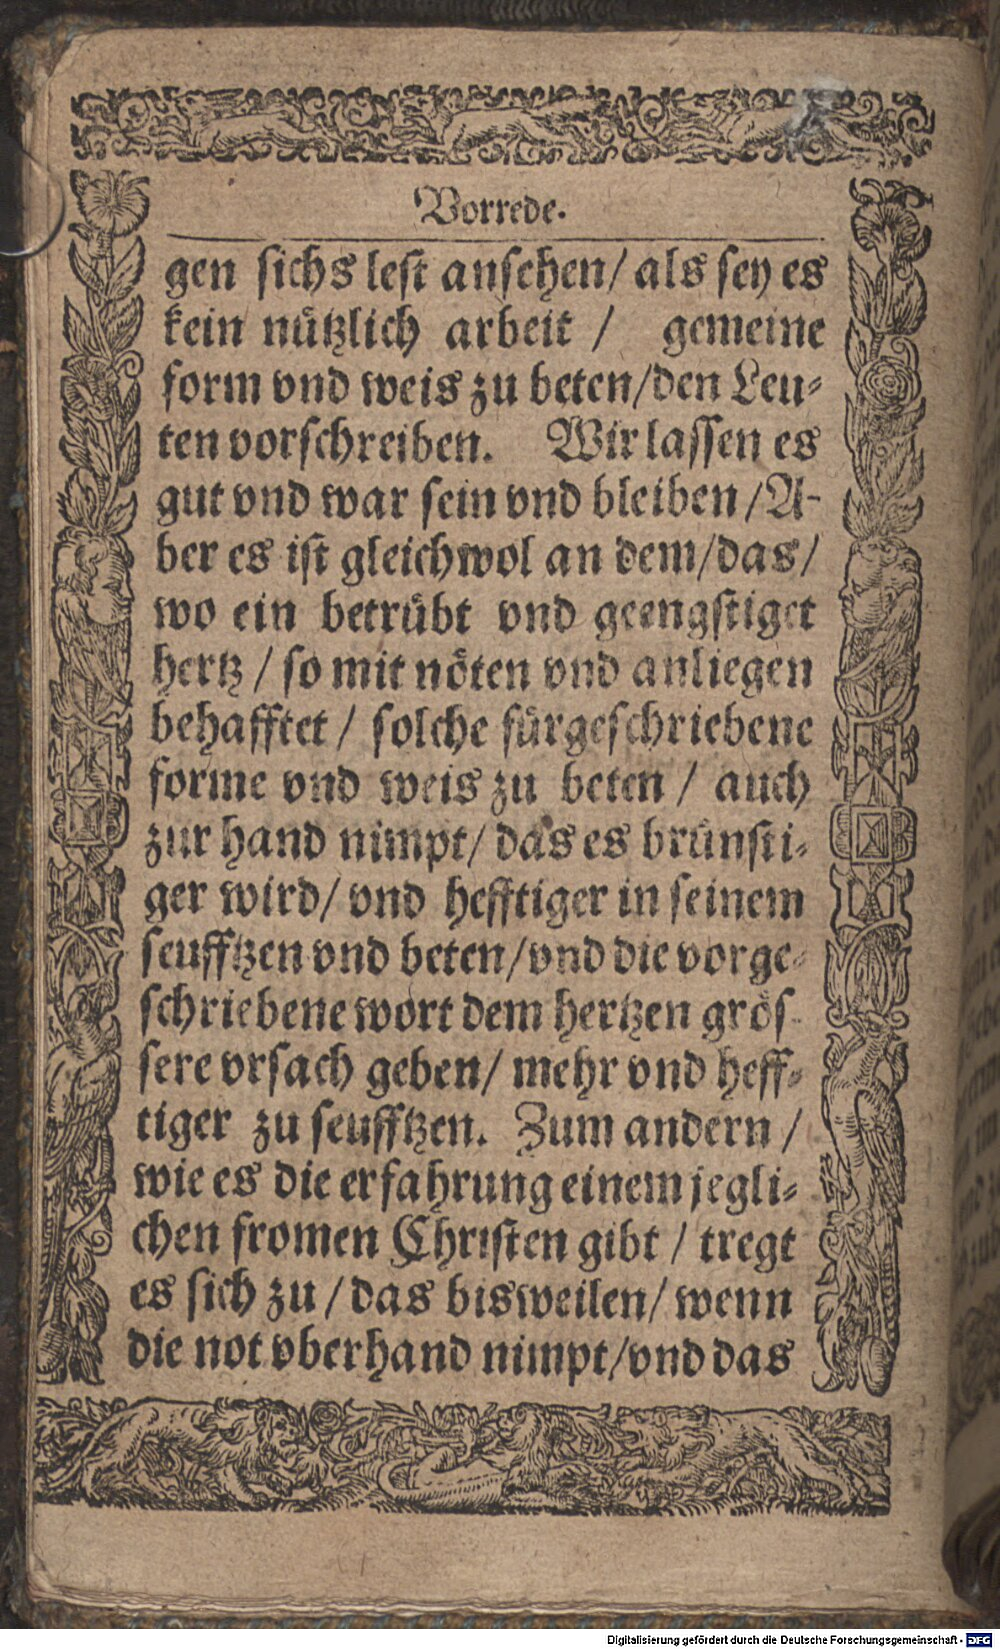 Vorrede.
gen sichs lest ansehen/ als sey es
kein nützlich arbeit / gemeine
form vnd weis zu beten/den Leu-
ten vorschreiben. Wir lassen es
gut vnd war sein vnd bleiben /A-
ber es ist gleichwol an dem/das/
wo ein betrübt vnd geengstiget
hertz / so mit nöten vnd anliegen
behafftet / solche fürgeschriebene
forme vnd weis zu beten / auch
zur hand nimpt/ das es brünsti-
ger wird/ vnd hefftiger in seinem
seufftzen vnd beten/vnd die vorge-
schriebene wort dem hertzen grös-
sere vrsach geben/ mehr vnd heff-
tiger zu seufftzen. Zum andern /
wie es die erfahrung einem jegli-
chen fromen Christen gibt / tregt
es sich zu / das bisweilen/ wenn
die not vberhand nimpt/vnd das
Digitalisierung gefördert durch die Deutsche Forschungsgemeinschaft - DFG